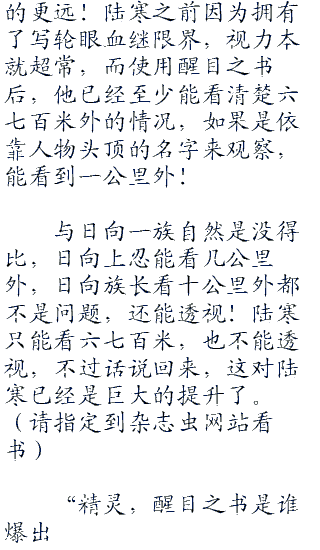 的更远！陆寒之前因为拥有
了写轮眼血继限界，视力本
就超常，而使用醒目之书
后，他已经至少能看清楚六
七百米外的情况，如果是依
靠人物头顶的名字来观察，
能看到一公里外！
与日向一族自然是没得
比，日向上忍能看几公里
外，日向族长看十公里外都
不是问题，还能透视！陆寒
只能看六七百米，也不能透
视，不过话说回来，这对陆
寒已经是巨大的提升了。
（请指定到杂志虫网站看
书）
“精灵，醒目之书是谁
爆出